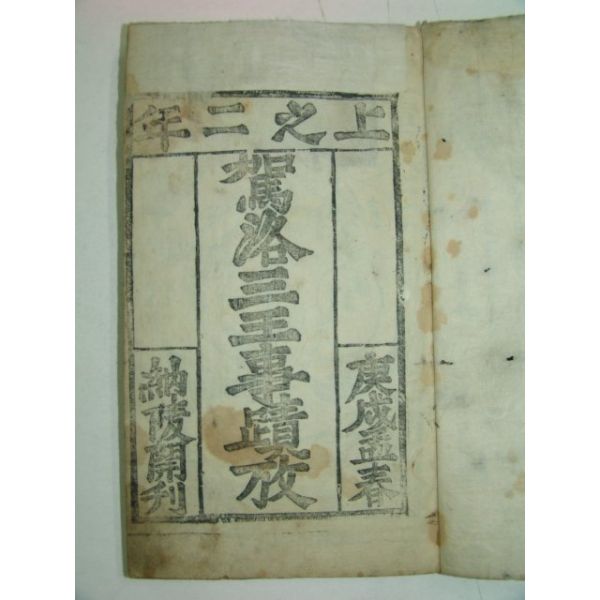 上之二年
庚戌孟春
駕洛三王事蹟攷
納陵開刊